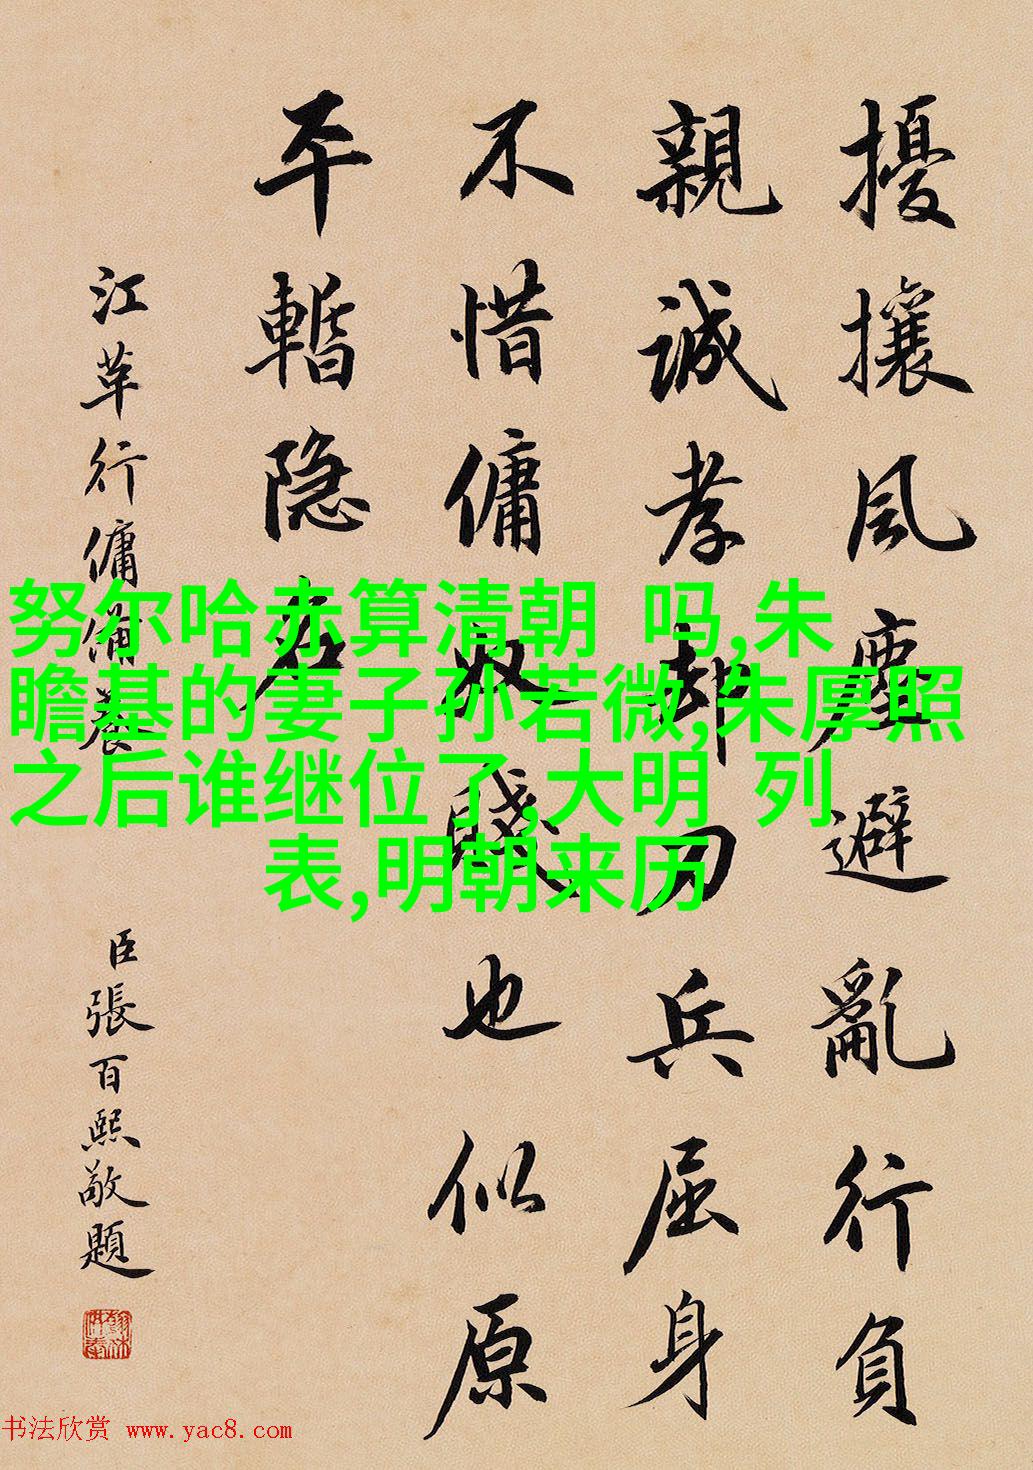 擾攘風塵避亂行負
親誠孝却刀兵屈身
不惜傭奴賤也似原
平暫隐名
江革行傭養
臣張百熙敬題
努尔哈赤算清朝 吗,朱
瞻基的妻子孙若微,朱厚照
之后谁继位了,大明 列
表,明朝来历
书法欣赏 www.yac8.com